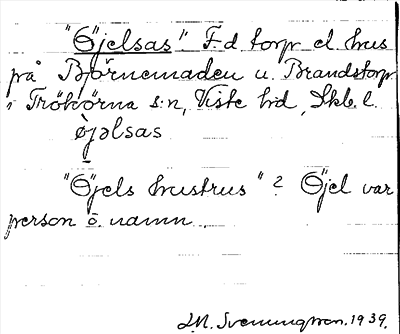 "Öjelsas" F.d torp el. hus
på Björnemaden u. Brandstorp
i Trökörna s:n, Viste hd, Skb. l.
øjəlsas
"Öjels hustrus"? Öjel var
person ö. namn.
I.M. Svenungsson. 1939.